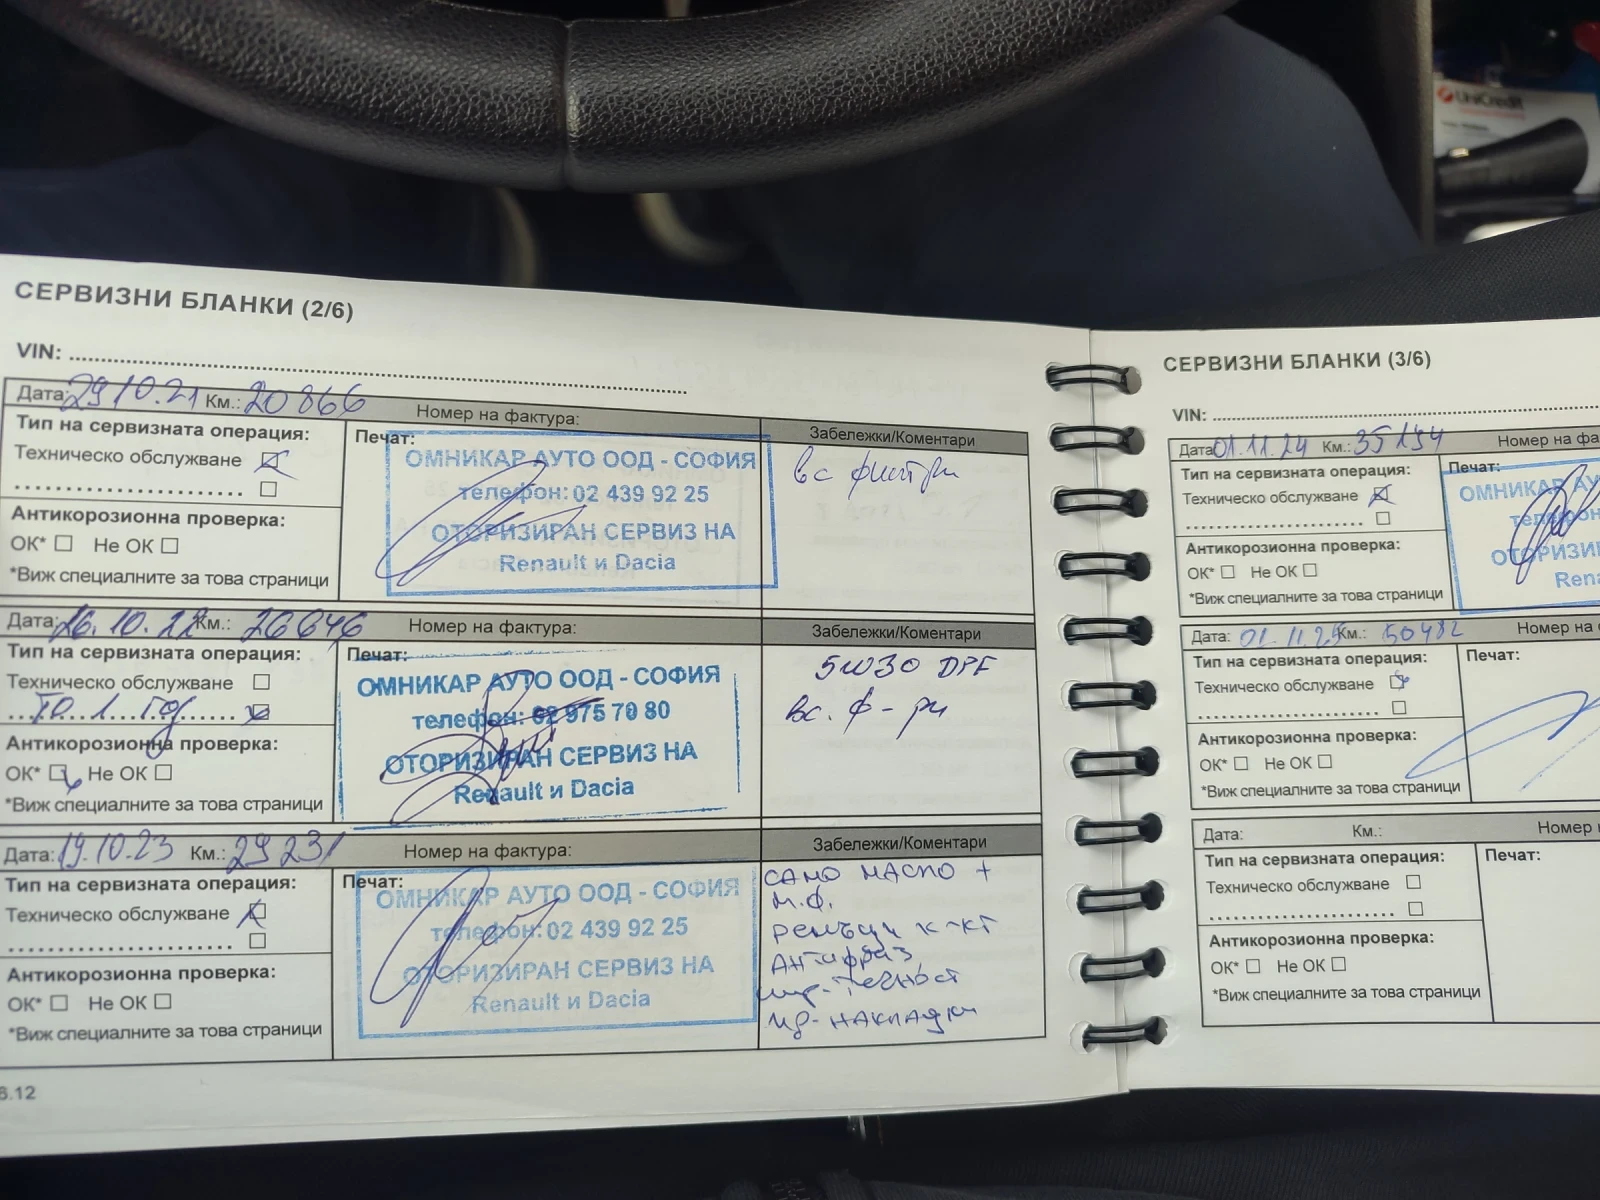 UniCredit
СЕРВИЗНИ БЛАНКИ (2/6)
VIN:
Дата: 29.10.21 Км.: 20866 Номер на фактура:
Тип на сервизната операция:
Техническо обслужване
Антикорозионна проверка:
ОК* Не ОК
*Виж специалните за това страници
Печат:
ОМНИКАР АУТО ООД - СОФИЯ
телефон: 02 439 92 25
ОТОРИЗИРАН СЕРВИЗ НА
Renault и Dacia
Забележки/Коментари
вс филтри
Дата: 26.10.22 Км.: 26646 Номер на фактура:
Тип на сервизната операция:
Техническо обслужване
ТО 1 год
Антикорозионна проверка:
ОК* Не ОК
*Виж специалните за това страници
Печат:
ОМНИКАР АУТО ООД - СОФИЯ
телефон: 02 975 70 80
ОТОРИЗИРАН СЕРВИЗ НА
Renault и Dacia
Забележки/Коментари
5W30 DPF
вс. ф-ри
Дата: 19.10.23 Км.: 29231 Номер на фактура:
Тип на сервизната операция:
Техническо обслужване
Антикорозионна проверка:
ОК* Не ОК
*Виж специалните за това страници
Печат:
ОМНИКАР АУТО ООД - СОФИЯ
телефон: 02 439 92 25
ОТОРИЗИРАН СЕРВИЗ НА
Renault и Dacia
Забележки/Коментари
САМО МАСЛО +
М.Ф.
РЕМЪЦИ К-КТ
АНТИФРИЗ
СПИР-ТЕЧНОСТ
ПР-НАКЛАДКИ
6.12
СЕРВИЗНИ БЛАНКИ (3/6)
VIN:
Дата: 01.11.24 Км.: 35194 Номер на фа
Тип на сервизната операция:
Техническо обслужване
Антикорозионна проверка:
ОК* Не ОК
*Виж специалните за това страници
Печат:
ОМНИКАР АУ
телефон
ОТОРИЗИ
Rena
Дата: 01.11.25 Км.: 50482 Номер на
Тип на сервизната операция:
Техническо обслужване
Антикорозионна проверка:
ОК* Не ОК
*Виж специалните за това страници
Печат:
Дата: Км.: Номер
Тип на сервизната операция:
Техническо обслужване
Антикорозионна проверка:
ОК* Не ОК
*Виж специалните за това страници
Печат: